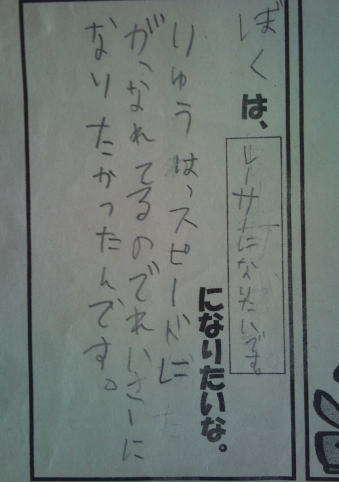 ぼくは、
レーサーになりたいです。
になりたいな。
りゅうは、スピードだ
が、なれてるのでれいさーに
なりたかったんです。